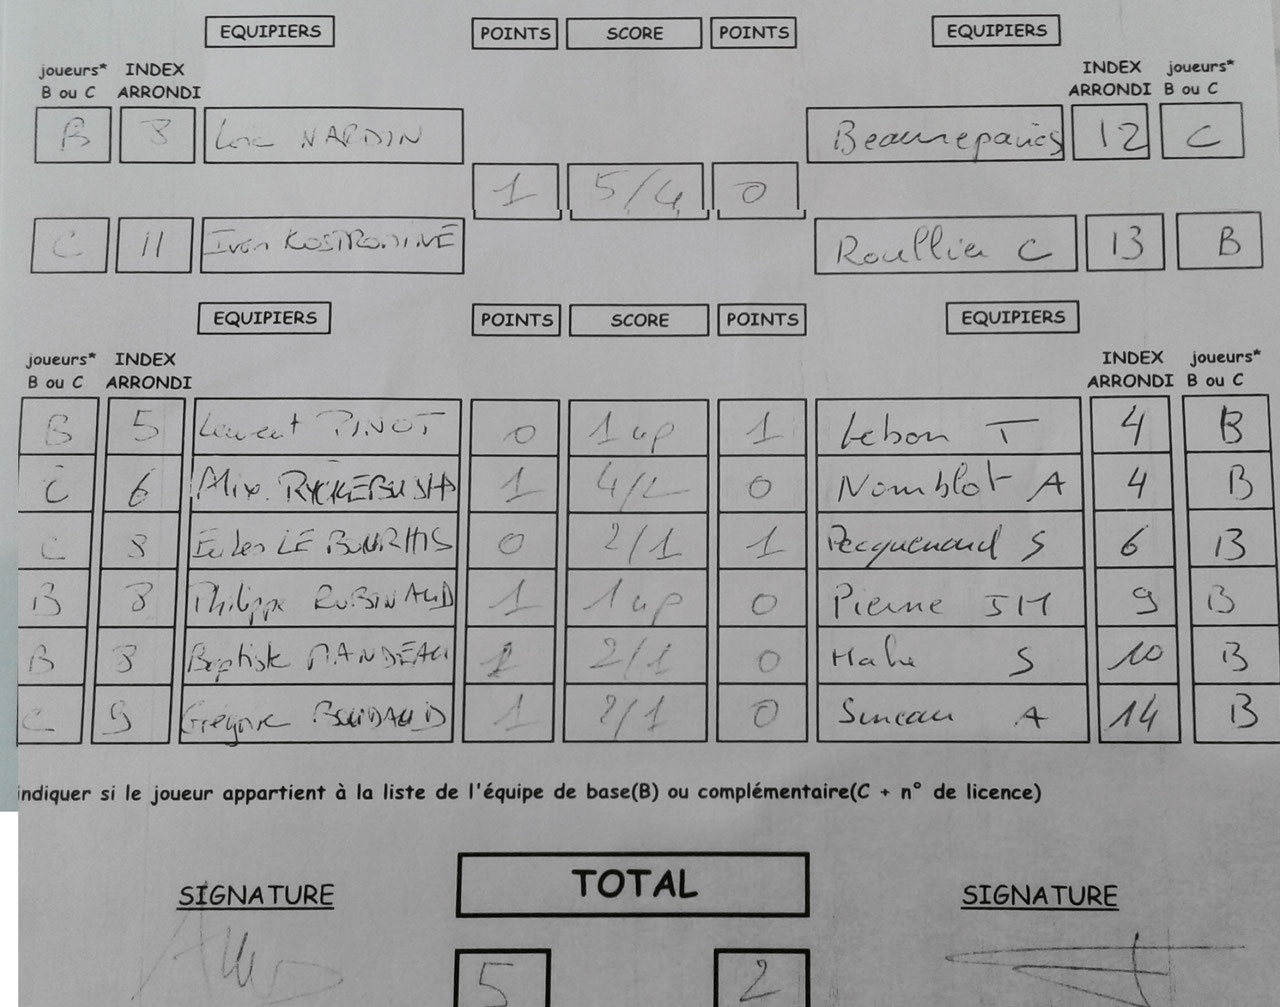 EQUIPIERS POINTS SCORE POINTS EQUIPIERS
joueurs* INDEX INDEX joueurs*
B ou C ARRONDI ARRONDI B ou C
B 8 Loïc NARDIN Beaurepaire 12 C
1 5/4 0
C 11 Ivan KOSTROMINE Roullier C 13 B
EQUIPIERS POINTS SCORE POINTS EQUIPIERS
joueurs* INDEX INDEX joueurs*
B ou C ARRONDI ARRONDI B ou C
B 5 Laurent PINOT 0 1 up 1 Lebon T 4 B
C 6 Alix 1 4/2 0 Nomblot A 4 B
C 8 LE BOURHIS 0 2/1 1 Pecquenard S 6 B
B 8 Philippe RUBINAUD 1 1 up 0 Pierre JM 9 B
B 8 Baptiste MANDEAU 1 2/1 0 Mahe S 10 B
C 9 Grégoire 1 2/1 0 Suneau A 14 B
indiquer si le joueur appartient à la liste de l'équipe de base(B) ou complémentaire(C + n° de licence)
SIGNATURE TOTAL SIGNATURE
5 2